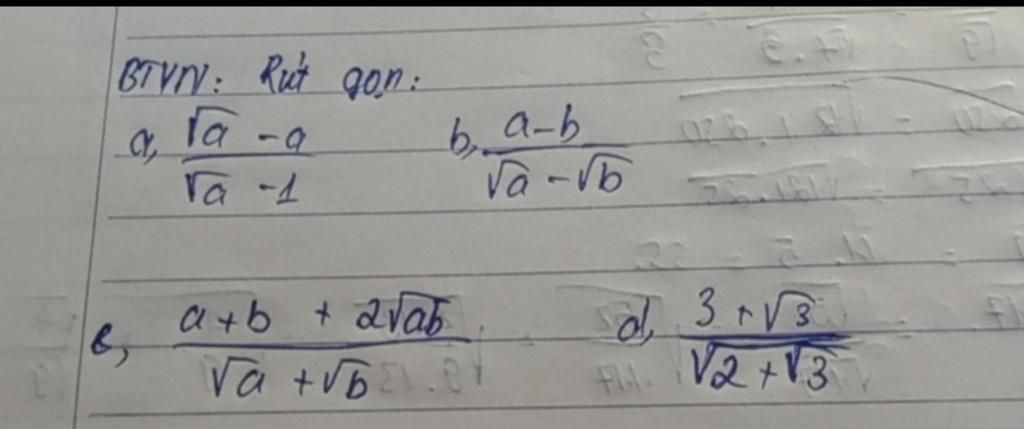 BTVN: Rút gọn:
a, (√a - a)/(√a - 1) b, (a - b)/(√a - √b)
c, (a + b + 2√ab)/(√a + √b) d, (3 + √3)/√(2 + √3)